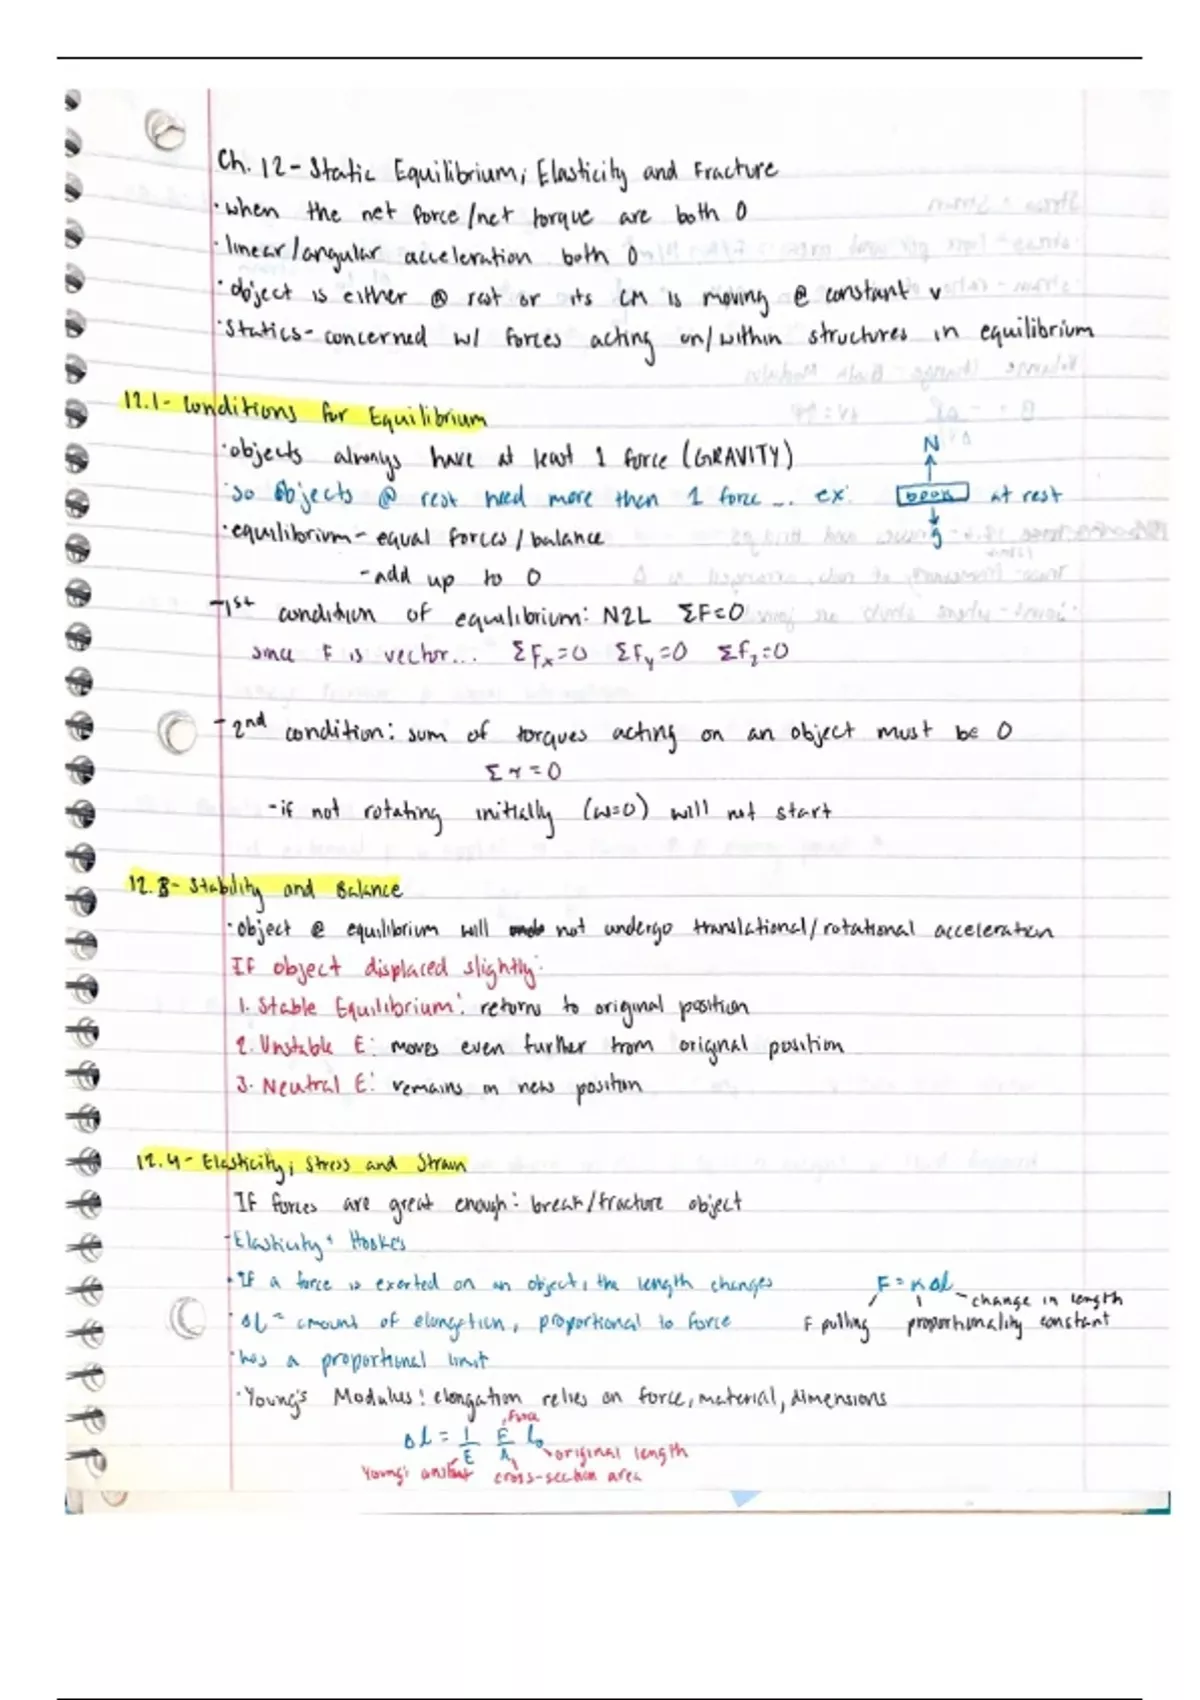 Ch. 12 - Static Equilibrium; Elasticity and Fracture
· when the net force/net torque are both 0
· linear/angular acceleration both 0
· object is either @ rest or its CM is moving @ constant v
· Statics - concerned w/ forces acting on/within structures in equilibrium
12.1 - Conditions for Equilibrium
· objects always have at least 1 force (GRAVITY)
· so objects @ rest need more then 1 force ... ex:
N
book at rest
g
· equilibrium - equal forces/balance
- add up to 0
- 1st condition of equilibrium: N2L ΣF=0
since F is vector... ΣFx=0 ΣFy=0 ΣFz=0
- 2nd condition: sum of torques acting on an object must be 0
Στ=0
- if not rotating initially (ω=0) will not start
12.3 - Stability and Balance
· object @ equilibrium will not undergo translational/rotational acceleration
If object displaced slightly:
1. Stable Equilibrium: returns to original position
2. Unstable E: moves even further from original position
3. Neutral E: remains in new position
12.4 - Elasticity; Stress and Strain
If forces are great enough: break/fracture object
- Elasticity + Hooke's
· If a force is exerted on an object, the length changes
F = k Δl
change in length
F pulling proportionality constant
· ΔL = amount of elongation, proportional to force
· has a proportional limit
· Young's Modulus: elongation relies on force, material, dimensions
Force
Δl = 1/E F/A l₀
original length
Young's constant cross-section area